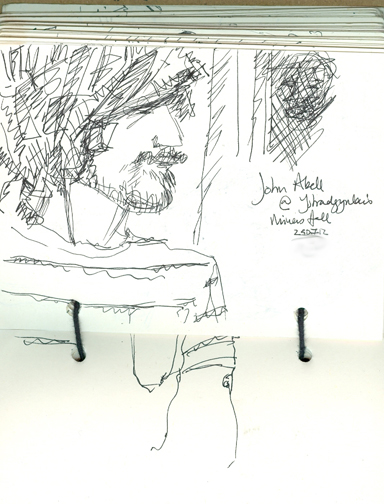 John Abell
@ Ystradgynlais
Miners Hall